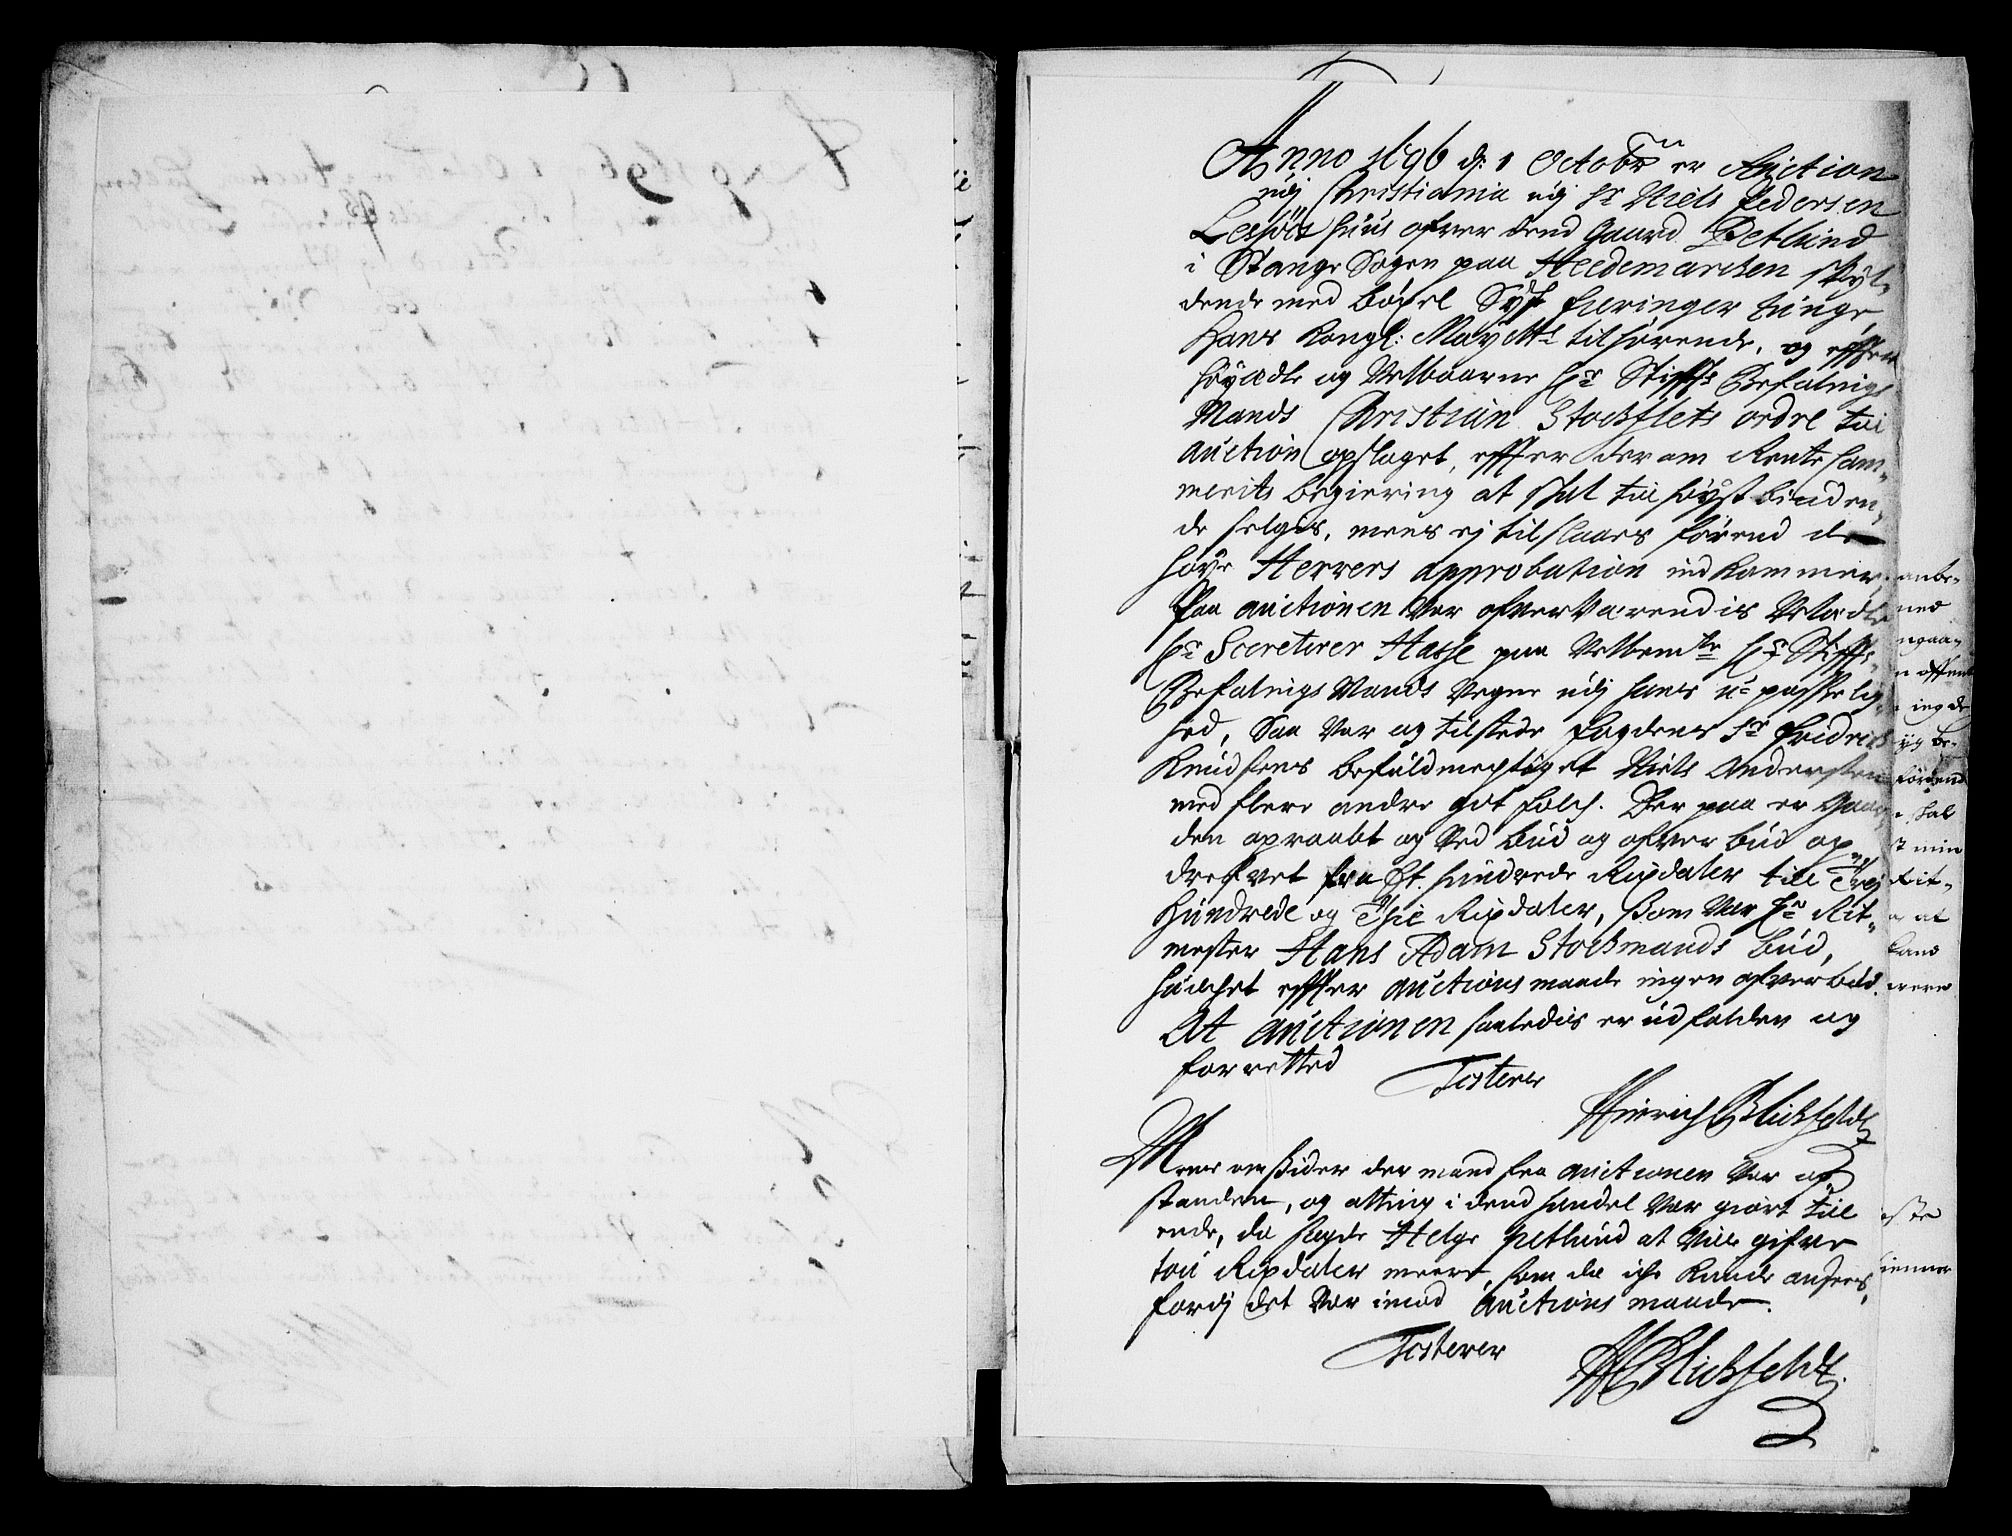 Anno 1696 d: 1 Octobr er Auction
udj Christiania udj Sr Niels Pedersen
Lesøes huus ofver dend Gaard Petlund
i Stange Sogen paa Heedemarchen skyl-
dende med böxel Syf fieringer tunge
Hans Kongl: Maÿtts tilhörende, og effter
höyædle og Velbaarne Hr Stiffts Befalnigs
Mands Christian Stockflets ordre til
auction opslaget, effter der om Rente Cam-
merits begiering at skal til höyst biuden-
de selgis, mens ej tilslaaes förend de
höye Herrers approbation ind kommer,
Paa auctionen var ofverværendis Velædle
Hr Secreterer Hasse paa Velbemte Hr Stiffts-
Befalnigs Mands Vegne udj hans upasselig-
hed, Saa var og tilstede fogdens Sr Fridrich
Knudsens befuldmegtiget Niels Andersen
med flere andre got folch. Der paa er Gaar-
den opraabt og ved bud og ofver bud op-
drefvet fra Et hundrede Rixdaler till Trej
Hundrede og Thie Rixdaler, som var Hr Rit-
mester Hans Adam Stockmands bud,
huilchet effter auctions maade ingen ofverböd.
At auctionen saaledis er udfalden og
forretted
Testerer
Hinrich Blichfeldt
Mens omsider der mand fra auctionen var op-
standen, og alting i dend handel var giort til
ende, da sagde Helge Petlund at ville gifve
tou Rixdaler meere, som da iche kunde ansees,
fordj det var imod auctions maade.
Testerer
HBlichfeldt